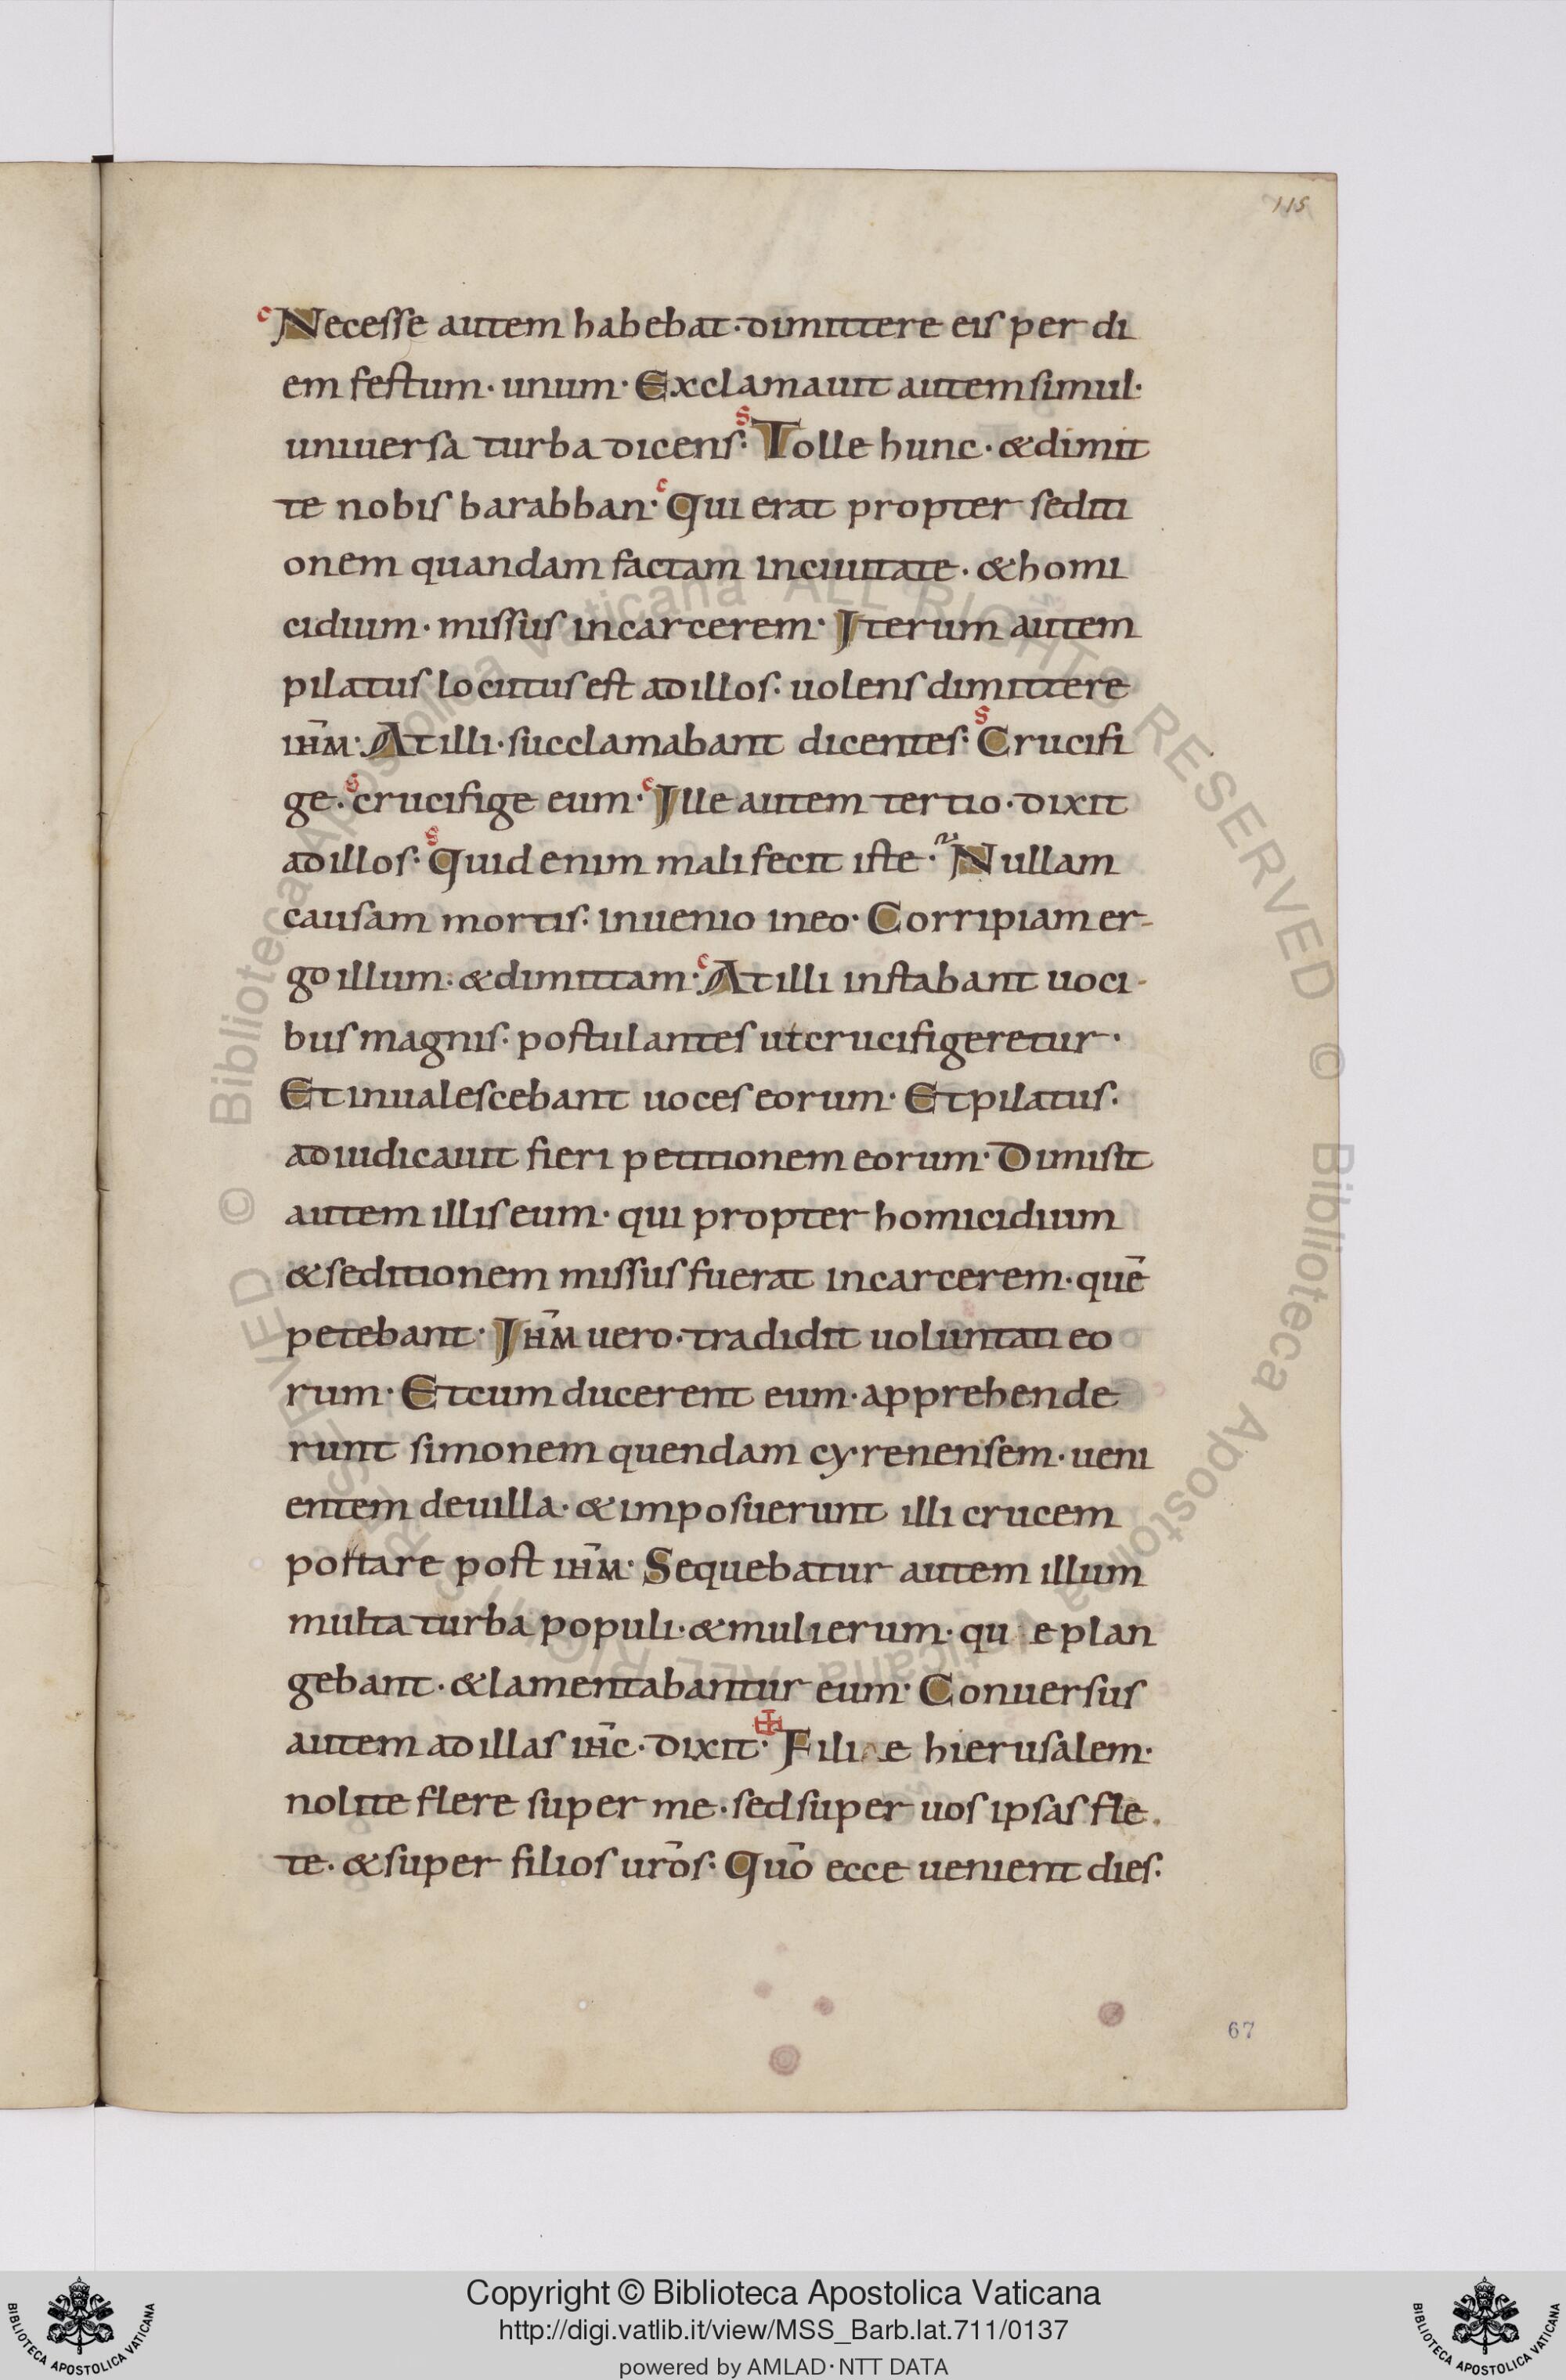 115
c Necesse autem habebat· dimittere eis per di
em festum· unum· Exclamauit autem simul·
uniuersa turba dicens: s Tolle hunc· & dimit
te nobis barabban· c Qui erat propter sediti
onem quandam factam in ciuitate· & homi
cidium· missus in carcerem· Iterum autem
pilatus locutus est ad illos· uolens dimittere
ihm̅· At illi· succlamabant dicentes: s Crucifi
ge· s crucifige eum· c Ille autem tertio· dixit
ad illos: s Quid enim mali fecit iste· Nullam
causam mortis: inuenio in eo· Corripiam er-
go illum: & dimittam· c At illi instabant uoci-
bus magnis· postulantes ut crucifigeretur·
Et inualescebant uoces eorum· Et pilatus·
adiudicauit fieri petitionem eorum· Dimisit
autem illis eum· qui propter homicidium
& seditionem missus fuerat in carcerem· quē
petebant· Ihm̅ uero· tradidit uoluntati eo
rum· Et cum ducerent eum· apprehende
runt simonem quendam cyrenensem· ueni
entem de uilla· & imposuerunt illi crucem
portare post ihm̅· Sequebatur autem illum
multa turba populi· & mulierum· qu e plan
gebant· & lamentabantur eum· Conuersus
autem ad illas ihc̅· dixit· ✠ Filiae hierusalem·
nolite flere super me· sed super uos ipsas fle
te· & super filios uro̅s: Quo̅ ecce uenient dies·
67
© Biblioteca Apostolica Vaticana ALL RIGHTS RESERVED
© Biblioteca Apostolica Vaticana ALL RIGHTS RESERVED
Copyright © Biblioteca Apostolica Vaticana
http://digi.vatlib.it/view/MSS_Barb.lat.711/0137
powered by AMLAD·NTT DATA
BIBLIOTECA APOSTOLICA VATICANA
BIBLIOTECA APOSTOLICA VATICANA